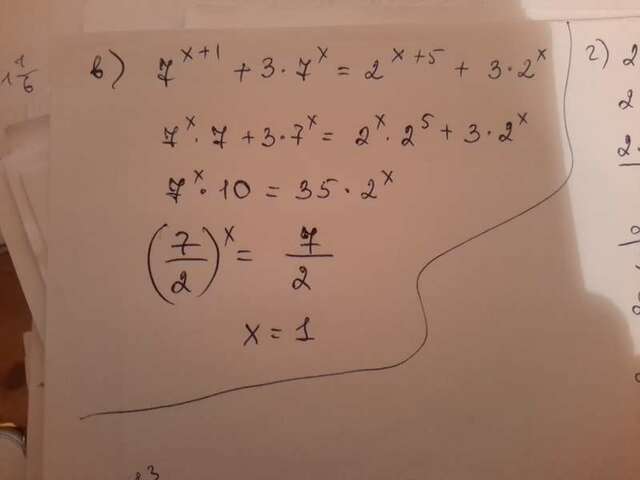 1 1/6
в) 7^(x+1) + 3·7^x = 2^(x+5) + 3·2^x
7^x·7 + 3·7^x = 2^x·2^5 + 3·2^x
7^x·10 = 35·2^x
(7/2)^x = 7/2
x = 1
г) 2
2
2·